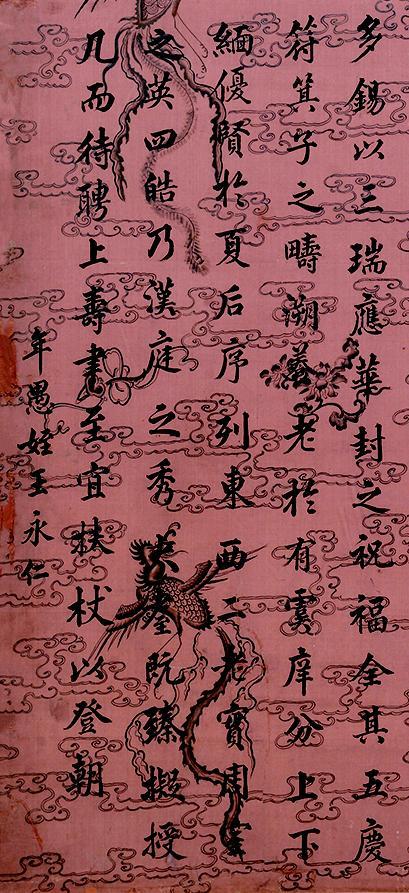 多錫以三瑞應華封之祝福全其五慶
符箕子之疇溯養老於有虞庠分上下
緬優賢於夏后序列東西二老實周室
之英四皓乃漢庭之秀大耋既臻擬授
几而待聘上壽書至宜扶杖以登朝
年愚姪王永仁